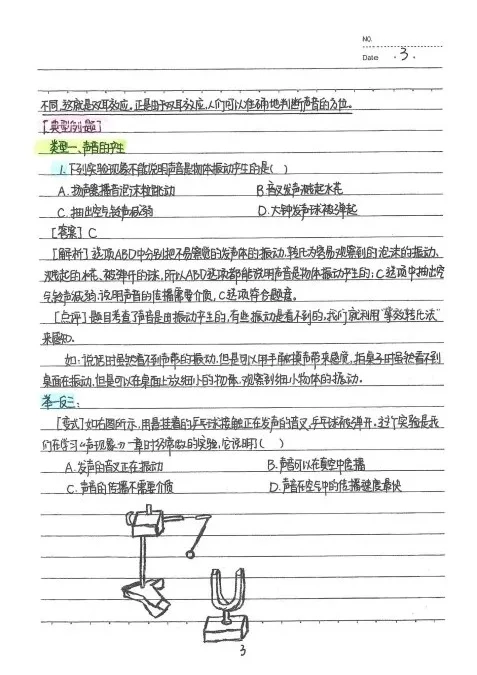 NO.
Date ·3·
不同,这就是双耳效应。正是由于双耳效应,人们可以准确地判断声音的方位。
[典型例题]
类型一、声音的产生
1.下列实验现象不能说明声音是物体振动产生的是( )
A.扬声器播音泡沫粒跳动 B.音叉发声溅起水花
C.抽出空气铃声减弱 D.大钟发声球被弹起
[答案] C
[解析] 选项ABD中分别把不易察觉的发声体的振动,转化为容易观察到的泡沫的振动、
溅起的水花、被弹开的球,所以ABD选项都能说明声音是物体振动产生的;C选项中抽出空
气铃声减弱,说明声音的传播需要介质,C选项符合题意。
[点评] 题目考查了声音是由振动产生的,有些振动是看不到的,我们就利用“等效转化法”
来感知。
如:说话时虽然看不到声带的振动,但是可以用手触摸声带来感觉,拍桌子时虽然看不到
桌面在振动,但是可以在桌面上放细小的物体,观察到细小物体的振动。
举一反三:
[变式] 如右图所示,用悬挂着的乒乓球接触正在发声的音叉,乒乓球被弹开,这个实验是我
们在学习《声现象》一章时经常做的实验,它说明了( )
A.发声的音叉正在振动 B.声音可以在真空中传播
C.声音的传播不需要介质 D.声音在空气中的传播速度最快
3